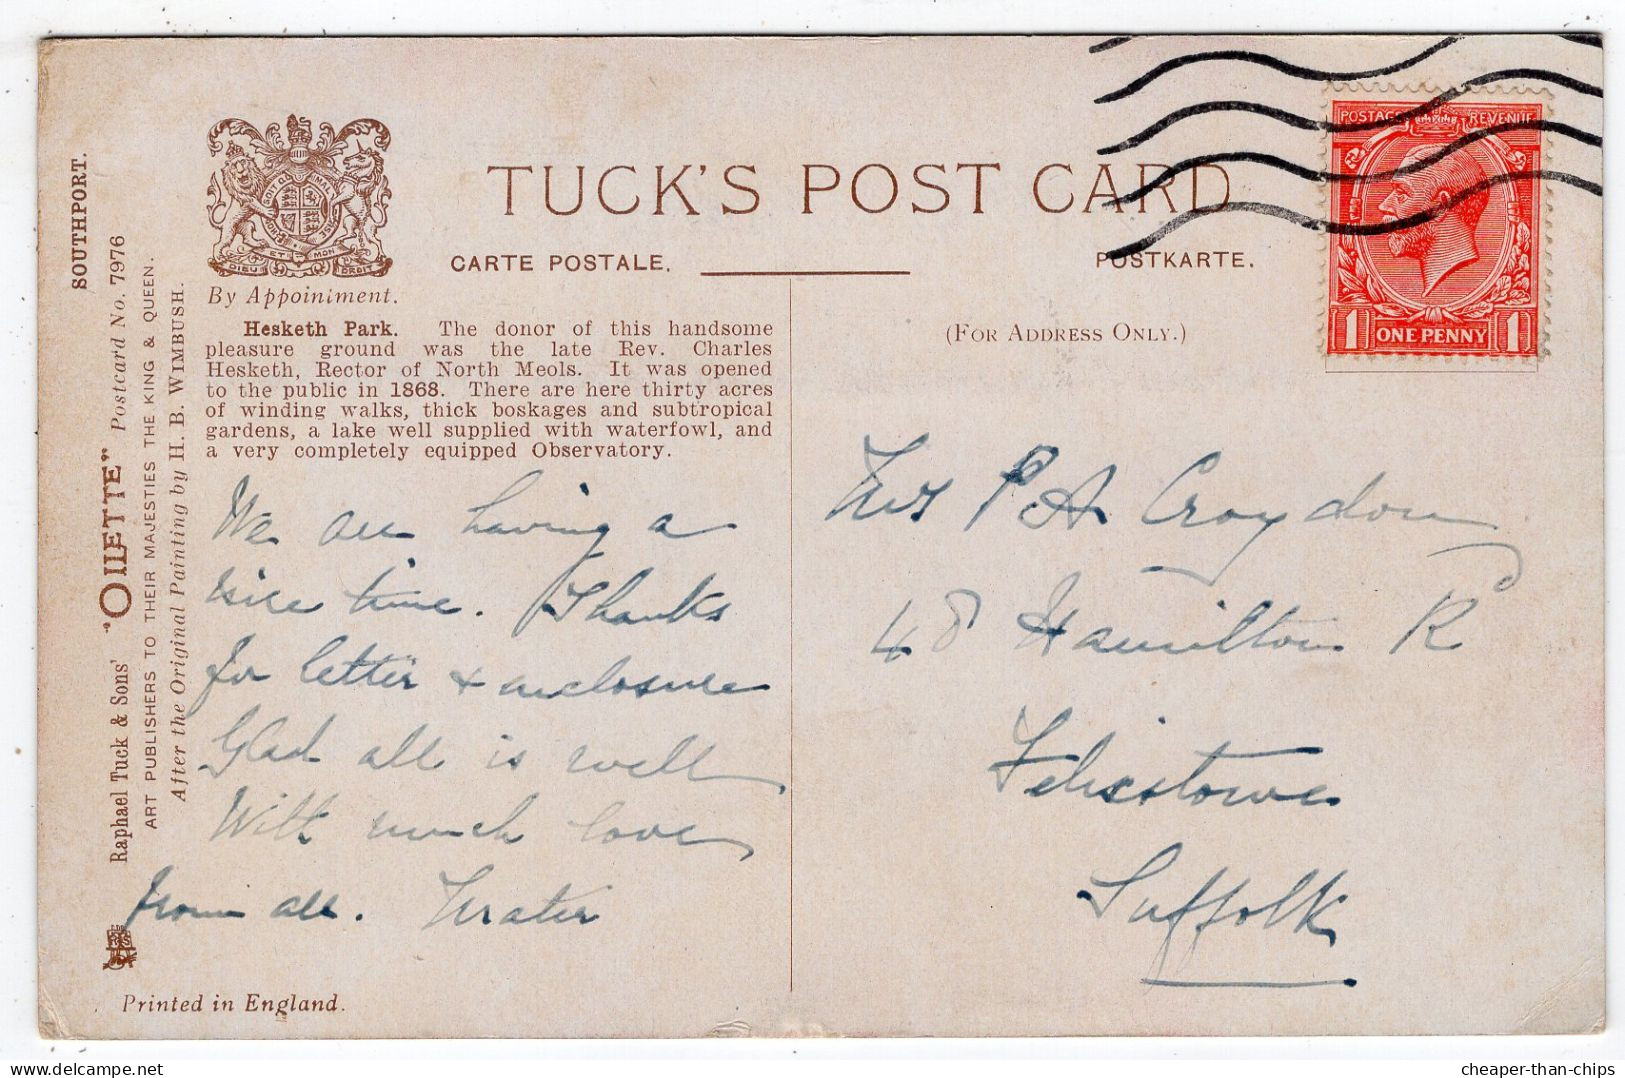 SOUTHPORT.
Raphael Tuck & Sons' "OILETTE" Postcard No. 7976
ART PUBLISHERS TO THEIR MAJESTIES THE KING & QUEEN.
After the Original Painting by H. B. WIMBUSH.
DIEU ET MON DROIT
By Appointment.
TUCK'S POST CARD
CARTE POSTALE.
POSTKARTE.
(FOR ADDRESS ONLY.)
POSTAGE REVENUE
1 ONE PENNY 1
Hesketh Park. The donor of this handsome
pleasure ground was the late Rev. Charles
Hesketh, Rector of North Meols. It was opened
to the public in 1868. There are here thirty acres
of winding walks, thick boskages and subtropical
gardens, a lake well supplied with waterfowl, and
a very completely equipped Observatory.
We are having a
nice time. Thanks
for letter & enclosure
Glad all is well
With much love
from all. Mater
Printed in England.
Mrs P. A. Croydon
48 Hamilton R
Felixstowe
Suffolk
cheaper-than-chips